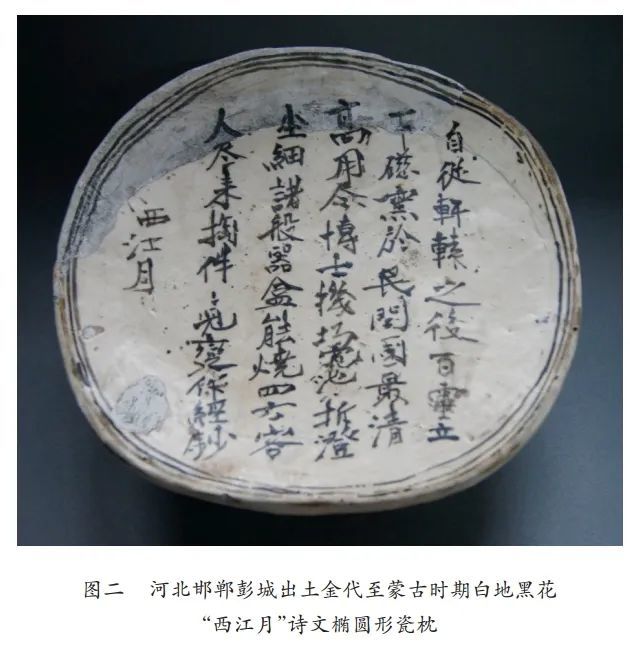 自從軒轅之後百靈立
下磁窯於民間國最清
高用尽博士機巧澄
細諸般器盒能燒四方客
人尽来掏件〻兒變作經鈔
西江月
图二 河北邯郸彭城出土金代至蒙古时期白地黑花
“西江月”诗文椭圆形瓷枕